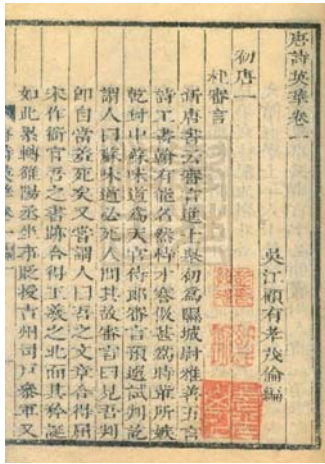 唐詩英華卷一
吳江顧有孝茂倫編
初唐一
杜審言
新唐書云審言進士舉初爲隰城尉雅善五言
詩工書翰有能名然恃才謇傲甚爲時輩所嫉
乾封中蘇味道爲天官侍郎審言預選試判訖
謂人曰蘇味道必死人問其故審言曰見吾判
即自當羞死矣又嘗謂人曰吾之文章合得屈
宋作衙官吾之書跡合得王羲之北面其矜誕
如此累轉雒陽丞坐事貶授吉州司戶參軍又